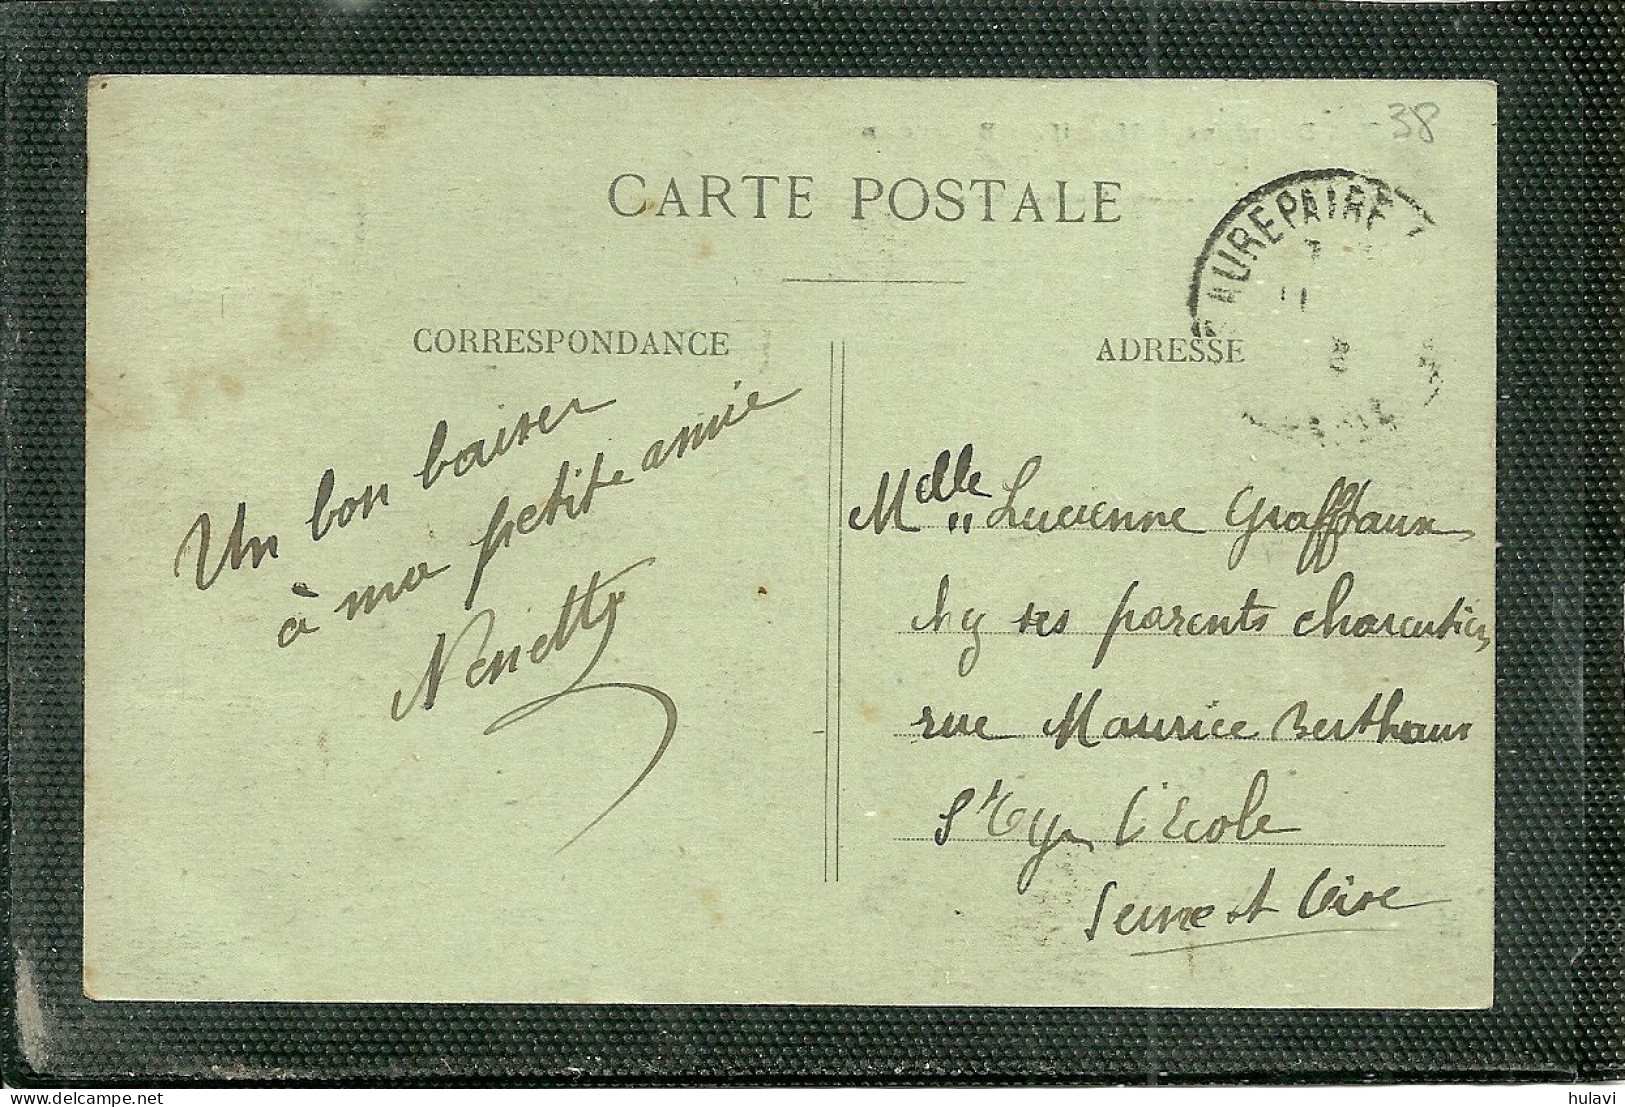 38
CARTE POSTALE
AUREPAIRE
CORRESPONDANCE
ADRESSE
Un bon baiser
à ma petite amie
Nenette
Melle Lucienne Graffaux
chez ses parents charcutiers
rue Maurice Berthaux
St Cyr l'Ecole
Seine et Oise
hulavi